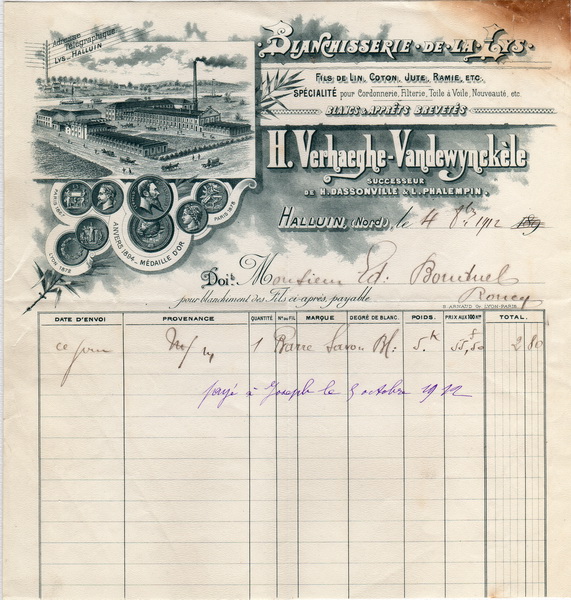 Adresse
Télégraphique
LYS-HALLUIN
BLANCHISSERIE·DE·LA·LYS.
FILS DE LIN, COTON, JUTE, RAMIE, ETC.
SPÉCIALITÉ pour Cordonnerie, Filterie, Toile à Voile, Nouveauté, etc.
BLANCS & APPRÊTS BREVETÉS
H. Verhaeghe-Vandewynckèle
SUCCESSEUR
DE H. DASSONVILLE & L. PHALEMPIN.
PARIS 1867
ANVERS 1894_MÉDAILLE D'OR
PARIS 1878
LYON 1872
HALLUIN, (Nord), le 4 8bre 1912 189
Doit Monsieur Ed. Bonduel
Roncq
pour blanchiment des Fils ci-après, payable
B. ARNAUD Dr LYON-PARIS.
DATE D'ENVOI PROVENANCE QUANTITÉ Nos DU FIL MARQUE DEGRÉ DE BLANC. POIDS. PRIX AUX 100 Ks TOTAL.
ce jour 1 Barre Savon Bl: 5.k 55,50 2 80
payé à Joseph le 5 octobre 1912